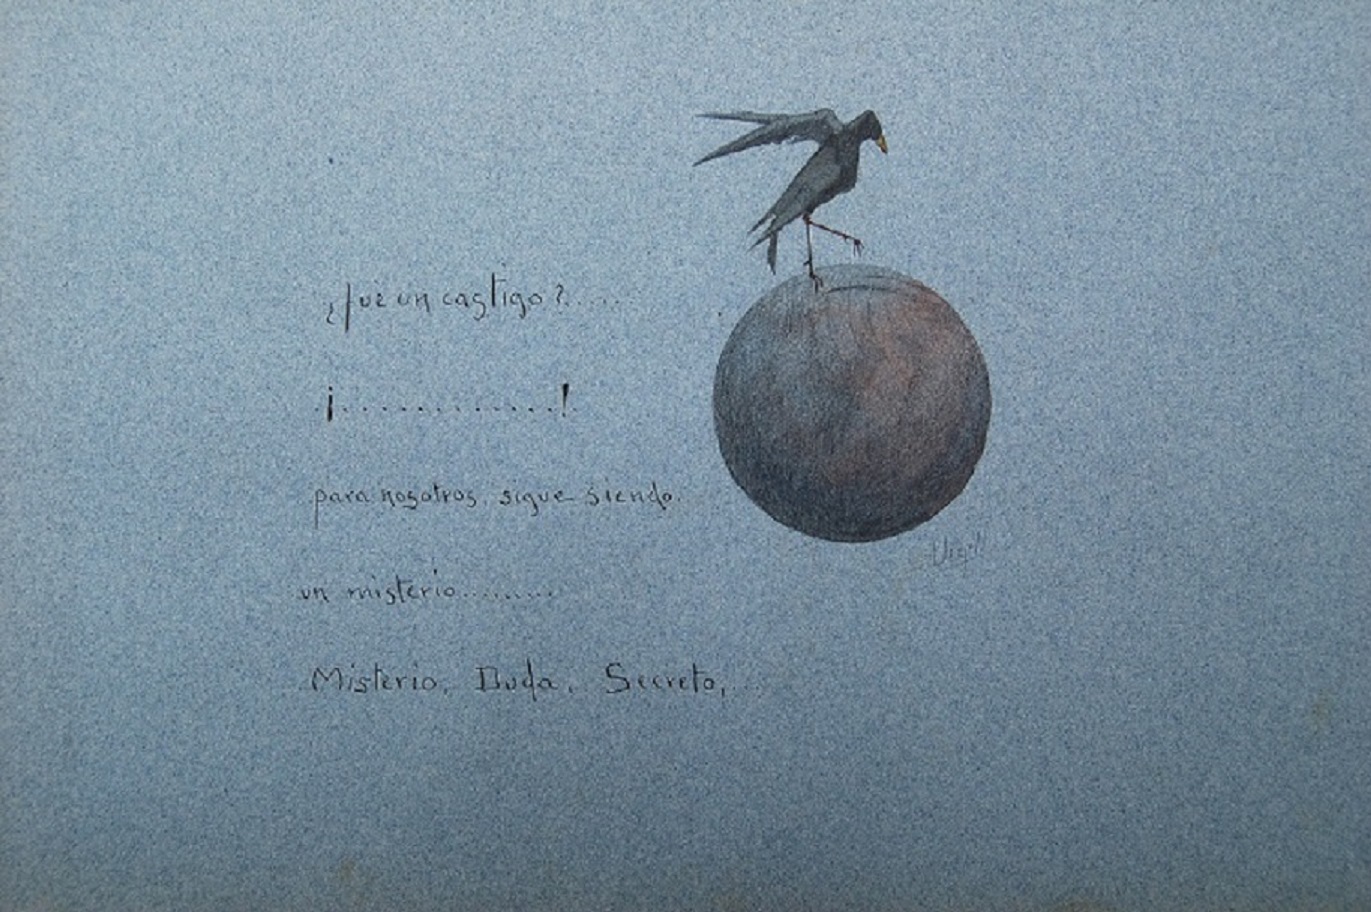 ¿fue un castigo?......
¡.............!
para nosotros, sigue siendo.
un misterio..........
Misterio, Duda, Secreto,....